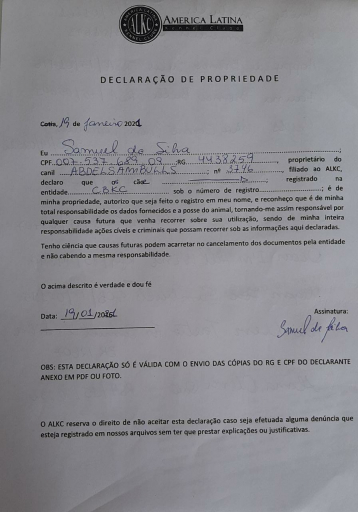 ALKC
AMERICA LATINA
KENNEL CLUB
DECLARAÇÃO DE PROPRIEDADE
Cotia, 19 de janeiro 2021
Eu Samuel da Silva
CPF 007.537.689.09 RG 4438259, proprietário do
canil ABDELSAMBULLS; nº 3746, filiado ao ALKC,
declaro que os cães, registrado na
entidade CBKC sob o número de registro; é de
minha propriedade, autorizo que seja feito o registro em meu nome, e reconheço que é de minha
total responsabilidade os dados fornecidos e a posse do animal, tornando-me assim responsável por
qualquer causa futura que venha recorrer sobre sua utilização, sendo de minha inteira
responsabilidade ações cíveis e criminais que possam recorrer sob as informações aqui declaradas.
Tenho ciência que causas futuras podem acarretar no cancelamento dos documentos pela entidade
e não cabendo a mesma responsabilidade.
O acima descrito é verdade e dou fé
Assinatura:
Data: 19/01/2021
Samuel da Silva
OBS: ESTA DECLARAÇÃO SÓ É VÁLIDA COM O ENVIO DAS CÓPIAS DO RG E CPF DO DECLARANTE
ANEXO EM PDF OU FOTO.
O ALKC reserva o direito de não aceitar esta declaração caso seja efetuada alguma denúncia que
esteja registrado em nossos arquivos sem ter que prestar explicações ou justificativas.